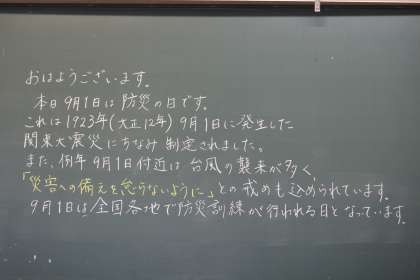 おはようございます。
本日9月1日は防災の日です。
これは1923年(大正12年) 9月1日に発生した
関東大震災にちなみ制定されました。
また、例年9月1日付近は台風の襲来が多く、
「災害への備えを怠らないように」との戒めも込められています。
9月1日は全国各地で防災訓練が行われる日となっています。